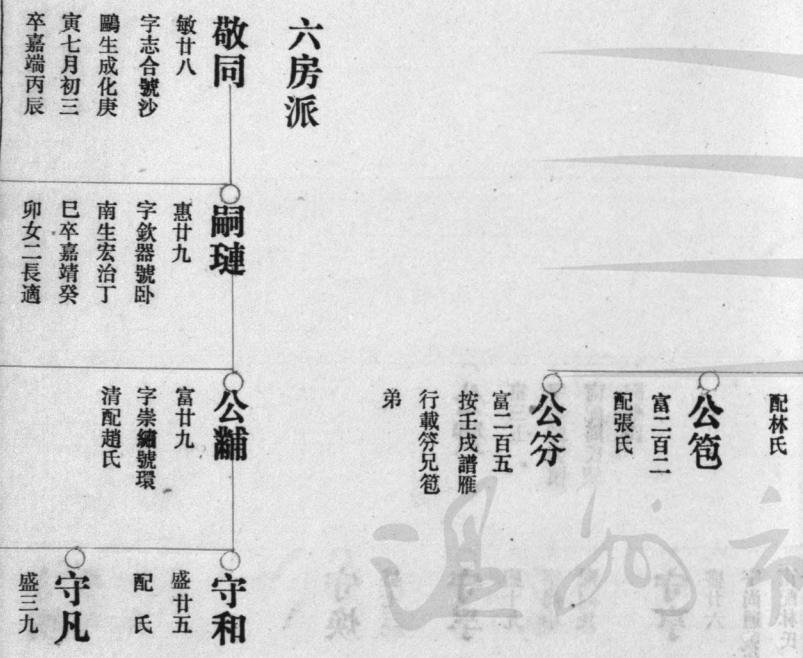 配林氏
公笣
富二百二
配張氏
公竻
富二百五
按壬戌譜雁
行載竻兄笣
弟
六房派
敬同
敏廿八
字志合號沙
鷗生成化庚
寅七月初三
卒嘉端丙辰
嗣璉
惠廿九
字欽器號卧
南生宏治丁
巳卒嘉靖癸
卯女二長適
公黼
富廿九
字崇繡號環
清配趙氏
守和
盛廿五
配 氏
守凡
盛三九